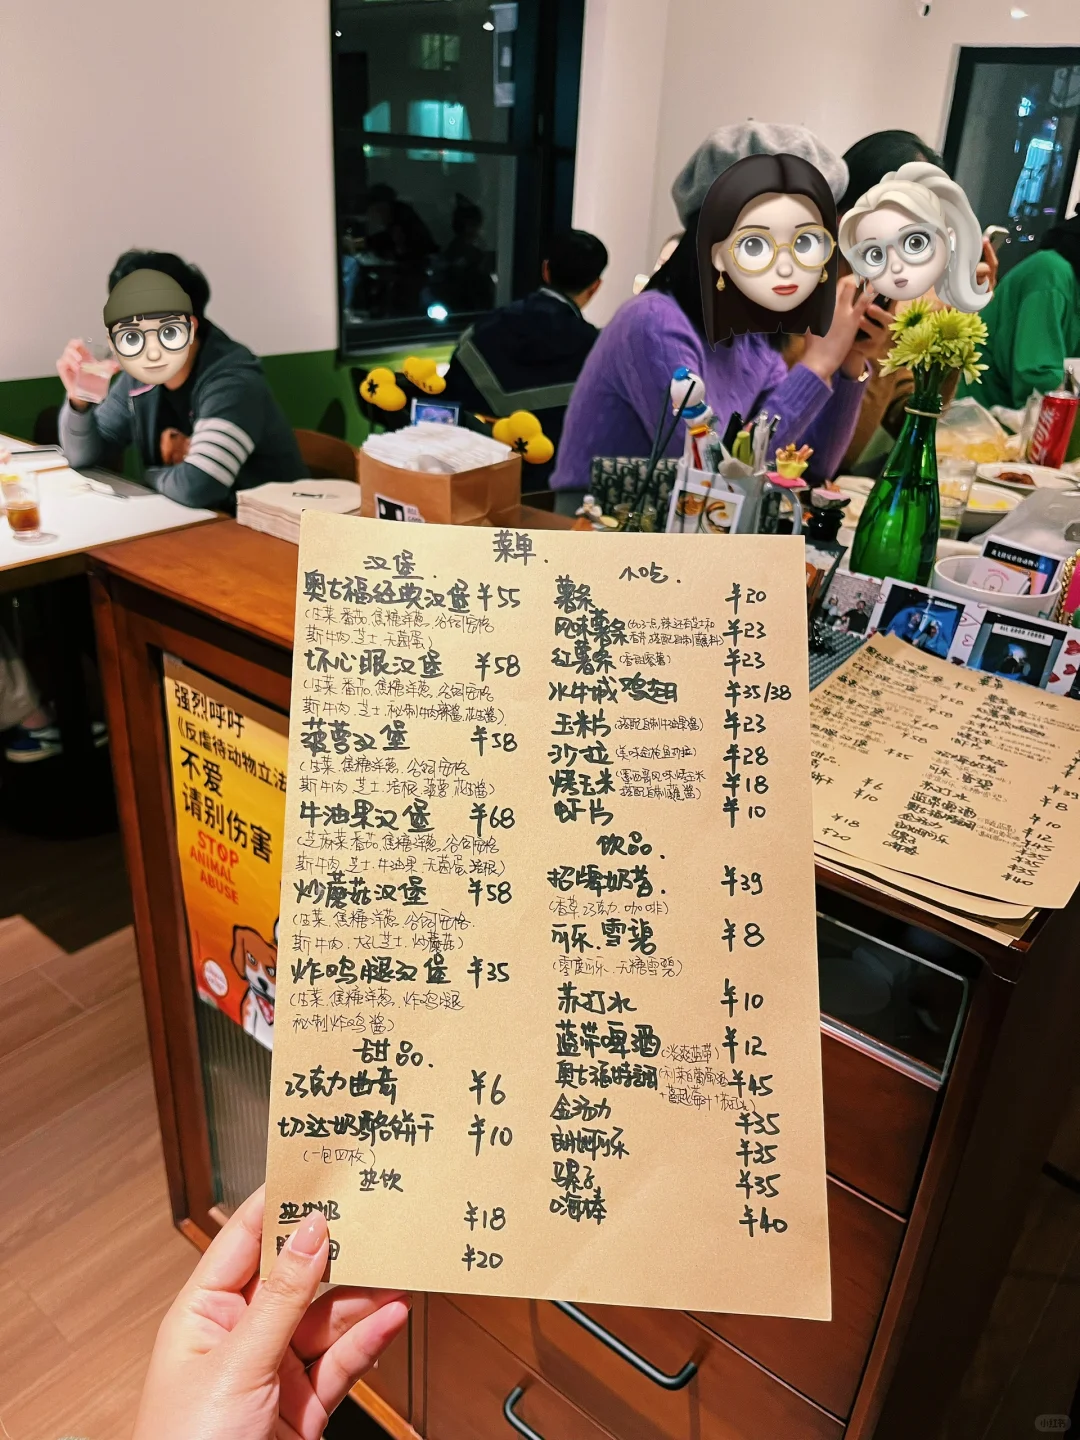 菜单.
汉堡.
奥古福经典汉堡 ¥55
(生菜.番茄.焦糖洋葱.谷饲安格
斯牛肉.芝士.无菌蛋)
坏心眼汉堡 ¥58
(生菜.番茄.焦糖洋葱.谷饲安格
斯牛肉.芝士.秘制牛肉辣酱.花生酱)
菠萝汉堡 ¥58
(生菜.焦糖洋葱.谷饲安格
斯牛肉.芝士.培根.菠萝.花生酱)
牛油果汉堡 ¥68
(芝麻菜.番茄.焦糖洋葱.谷饲安格
斯牛肉.芝士.牛油果.无菌蛋.培根)
炒蘑菇汉堡 ¥58
(生菜.焦糖洋葱.谷饲安格
斯牛肉.大孔芝士.炒蘑菇)
炸鸡腿汉堡 ¥35
(生菜.焦糖洋葱.炸鸡腿
秘制炸鸡酱)
甜品.
巧克力曲奇 ¥6
切达奶酪饼干 ¥10
(一包四枚)
热饮
热牛奶 ¥18
¥20
小吃.
薯条 ¥20
风味薯条 ¥23
红薯条 ¥23
水牛城鸡翅 ¥35/38
玉米片(搭配自制牛油果酱) ¥23
沙拉(美味金枪鱼沙拉) ¥28
烤玉米(墨西哥风味烤玉米 ¥18
搭配自制蘸酱)
虾片 ¥10
饮品.
招牌奶昔. ¥39
(香草.巧克力.咖啡)
可乐.雪碧 ¥8
(零度可乐.无糖雪碧)
苏打水 ¥10
蓝带啤酒(淡爽蓝带) ¥12
奥古福特调 ¥45
金汤力 ¥35
朗姆可乐 ¥35
骡子 ¥35
嗨棒 ¥40
强烈呼吁
《反虐待动物立法
不爱
请别伤害
STOP
ANIMAL
ABUSE
小红书